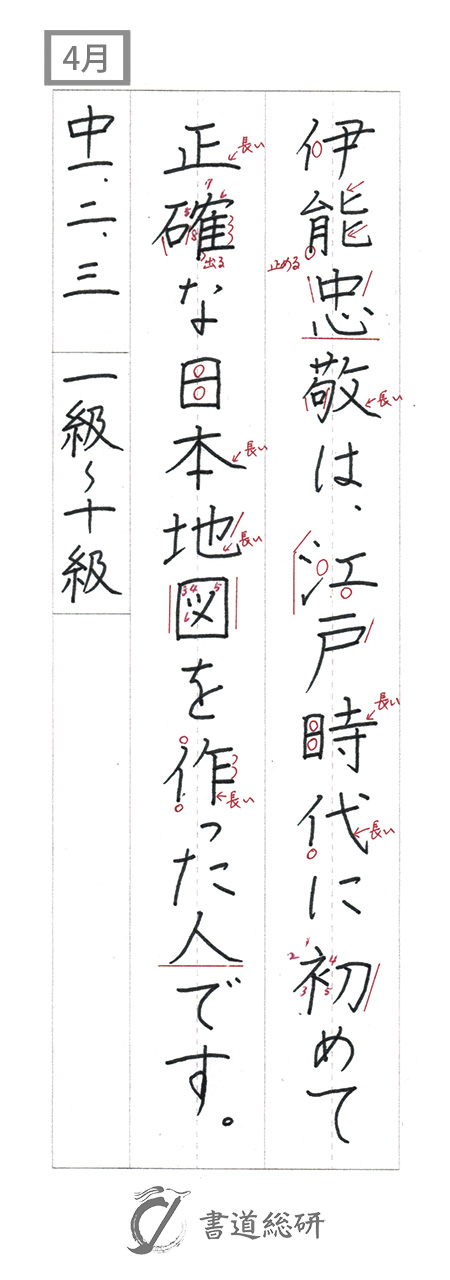 4月
伊能忠敬は、江戸時代に初めて
正確な日本地図を作った人です。
中一、二、三 一級~十級
長い
7
5
8
出る
止める
長い
長い
長い
3 4 5
6
長い
長い
長い
1
2
4
3
5
書道総研